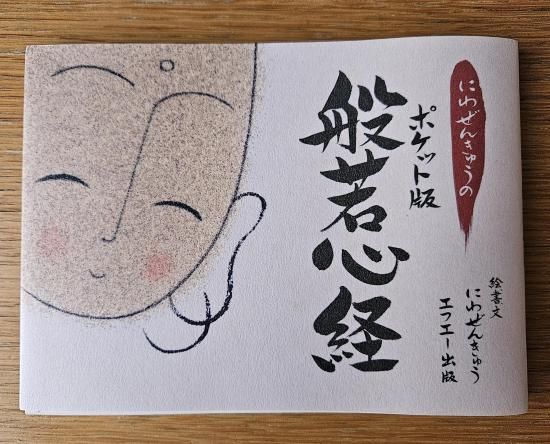 にわぜんきゅうの
ポケット版
般若心経
絵書文
にわぜんきゅう
エフエー出版